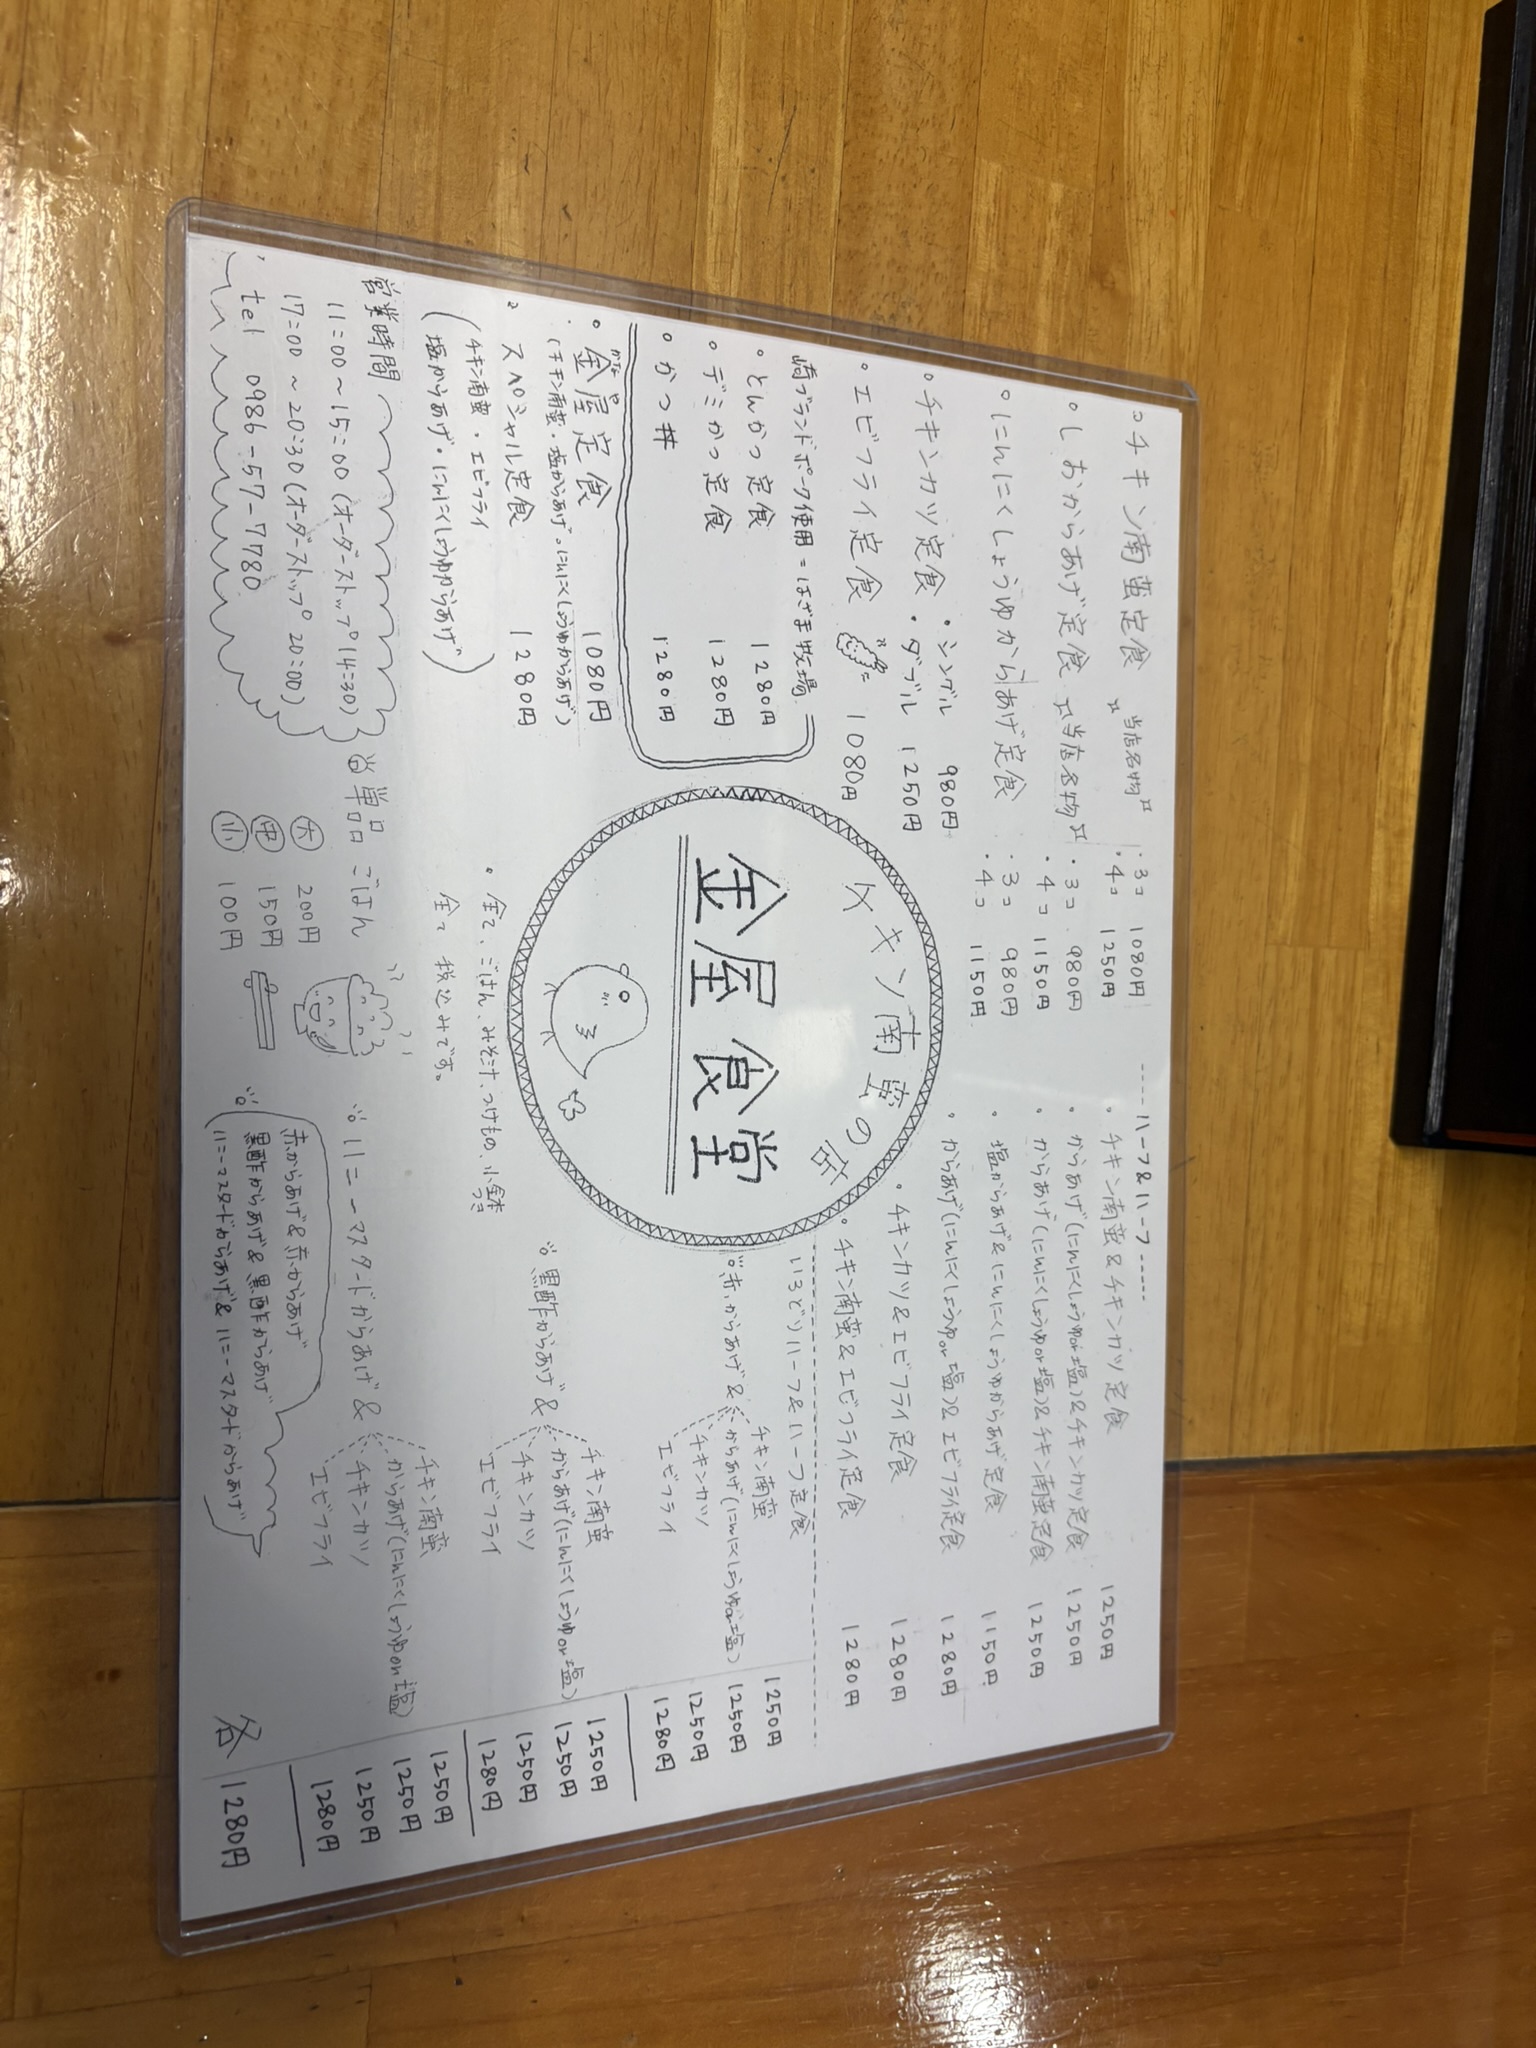 チキン南蛮定食 ¤当店名物¤ ・3コ 1080円
・4コ 1250円
しおからあげ定食 ¤当店名物¤ ・3コ 980円
・4コ 1150円
にんにくしょうゆからあげ定食 ・3コ 980円
・4コ 1150円
チキンカツ定食 ・シングル 980円
・ダブル 1250円
エビフライ定食 1080円
崎ブランドポーク使用=はざま牧場
とんかつ定食 1280円
デミかつ定食 1280円
かつ丼 1280円
かな や
金屋定食 1080円
(チキン南蛮・塩からあげ・にんにくしょうゆからあげ)
スペシャル定食 1280円
(チキン南蛮・エビフライ
塩からあげ・にんにくしょうゆからあげ)
営業時間
11:00~15:00(オーダーストップ14:30)
17:00~20:30(オーダーストップ20:00)
tel 0986-57-7780
チキン南蛮の店
金屋食堂
全て、ごはん、みそ汁、つけもの、小鉢つき
全て税込みです。
単品 ごはん
大 200円
中 150円
小 100円
----ハーフ&ハーフ----
チキン南蛮&チキンカツ定食 1250円
からあげ(にんにくしょうゆor塩)&チキンカツ定食 1250円
からあげ(にんにくしょうゆor塩)&チキン南蛮定食 1250円
塩からあげ&にんにくしょうゆからあげ定食 1150円
からあげ(にんにくしょうゆor塩)&エビフライ定食 1280円
チキンカツ&エビフライ定食 1280円
チキン南蛮&エビフライ定食 1280円
いろどりハーフ&ハーフ定食
赤からあげ& チキン南蛮 1250円
からあげ(にんにくしょうゆor塩) 1250円
チキンカツ 1250円
エビフライ 1280円
黒酢からあげ& チキン南蛮 1250円
からあげ(にんにくしょうゆor塩) 1250円
チキンカツ 1250円
エビフライ 1280円
ハニーマスタードからあげ& チキン南蛮 1250円
からあげ(にんにくしょうゆor塩) 1250円
チキンカツ 1250円
エビフライ 1280円
赤からあげ&赤からあげ
黒酢からあげ&黒酢からあげ
ハニーマスタードからあげ&ハニーマスタードからあげ 各 1280円